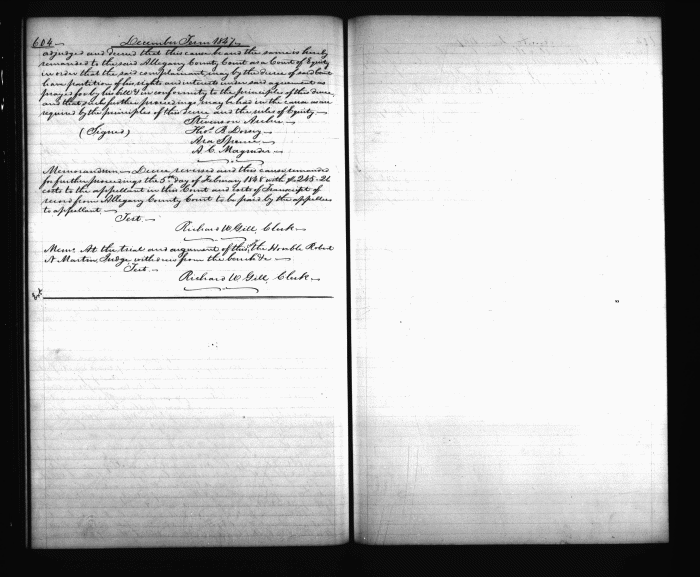 604 December Term 1847
adjudged and decreed that this cause be and the same is hereby
remanded to the said Allegany County Court as a Court of Equity
in order that the said complainant may by the decree of said Court
have partition of his rights and interests under said agreement as
prayed for by his bill & in conformity to the principles of this decree,
and that such further proceedings may be had in the cause as are
required by the principles of this decree and the rules of Equity
Stevenson Archer
(Signed) Tho. B Dorsey
Ara Spence
A. C. Magruder
Memorandum Decree reversed and this cause remanded
for further proceedings the 5th day of February 1848 with $243.21
costs to the appellant in this Court and costs of Transcript of
record from Allegany County Court to be paid by the appellees
to appellant
Test.
Richard W. Gill, Clerk
Mem. At the trial and argument of this, the Honble Robert
N Martin Judge withdrew from the bench &c
Test.
Richard W Gill, Clerk